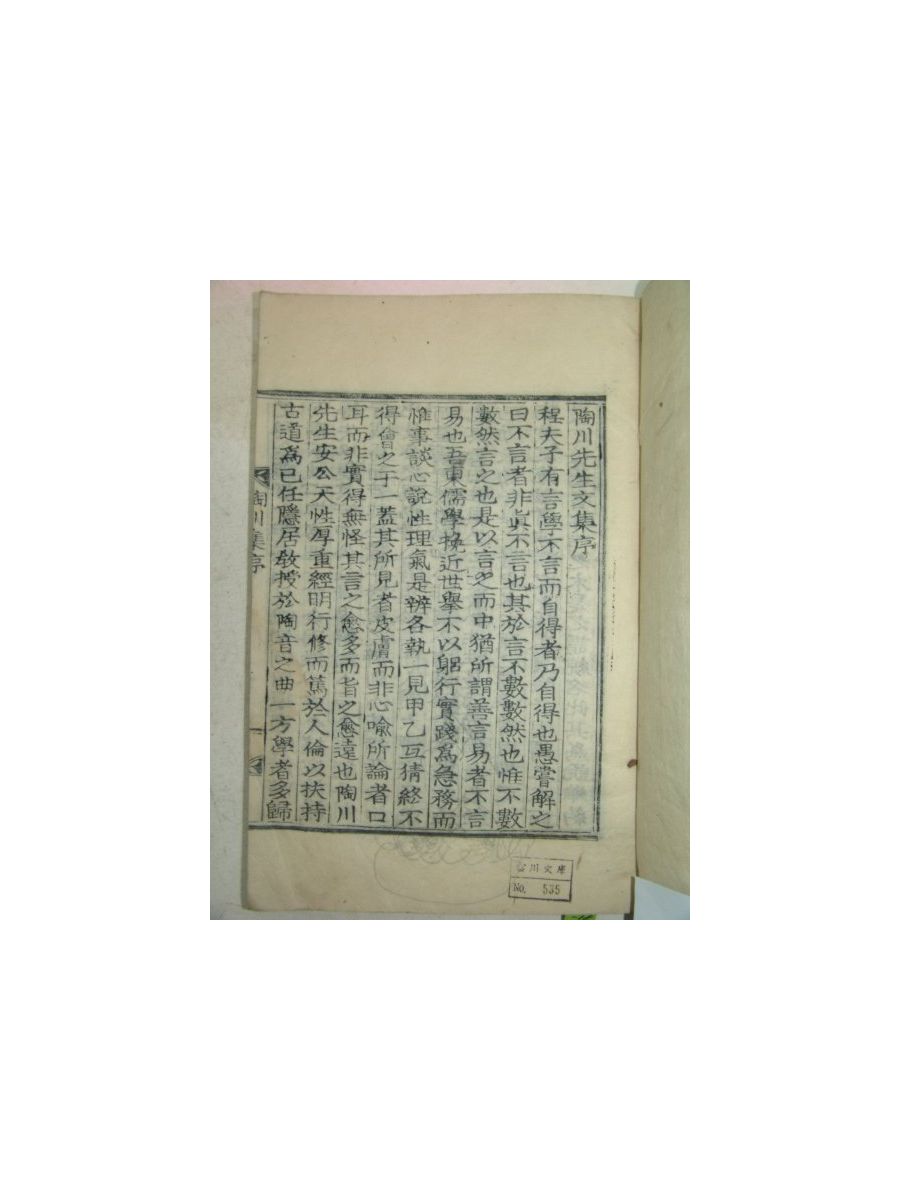 陶川先生文集序
程夫子有言學不言而自得者乃自得也愚嘗解之
曰不言者非眞不言也其於言不數數然也惟不數
數然言之也是以言之而中猶所謂善言易者不言
易也吾東儒學挽近世擧不以躬行實踐爲急務而
惟事談心說性理氣是辨各執一見甲乙互猜終不
得會之于一蓋其所見者皮膚而非心喩所論者口
耳而非實得無怪其言之愈多而旨之愈遠也陶川
先生安公天性厚重經明行修而篤於人倫以扶持
古道爲已任隱居敎授於陶音之曲一方學者多歸
陶川集序
一
川文庫
No. 535